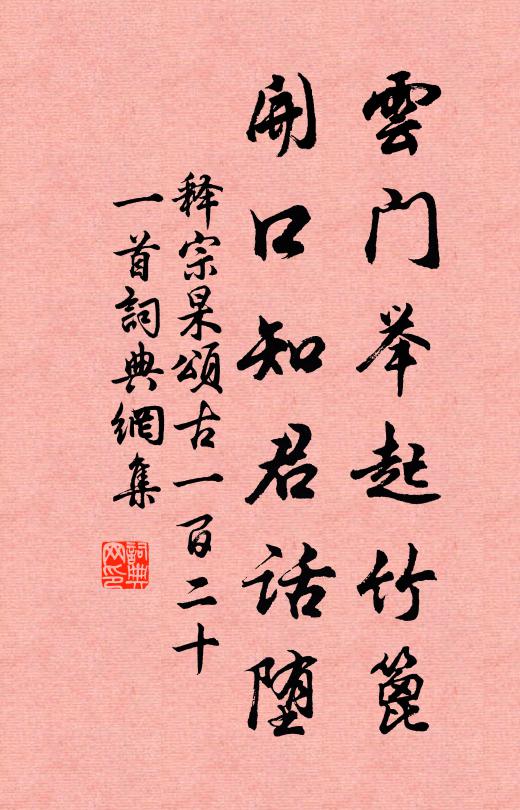 雲门举起竹篦
開口知君话堕
释宗杲頌古一百二十
一首詞典網集
詞典
网印